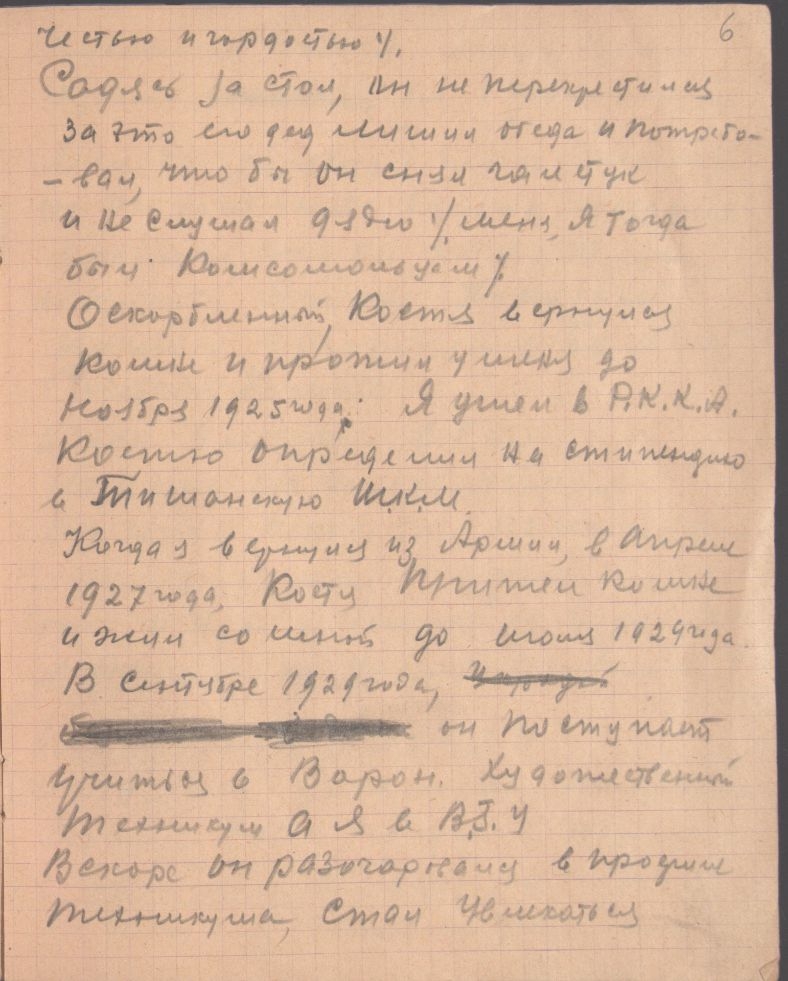 6
честью и гордостью %.
Садясь за стол, он не перекрестился
за это его дед лишил обеда и потребо-
-вал, что бы он снял галстук
и не слушал дядю % меня, я тогда
был Комсомольцем %
Оскорбленный, Костя вернулся
комне и прожил у меня до
Ноября 1925 года. Я ушел в Р.К.К.А.
Костю определили на стипендию
в Тишанскую Ш.К.М.
Когда я вернулся из Армии, в Апреле
1927 года, Костя Пришел комне
и жил со мной до июля 1929 года.
В Сентябре 1929 года,
он поступает
учиться в Ворон. Художественный
техникум а я в В.Т.У
Вскоре он разочаровался в профиле
техникума, стал увлекаться